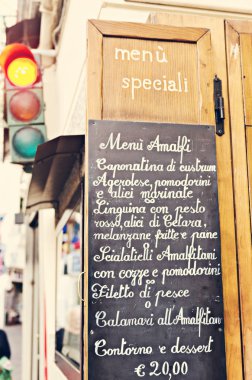 menù
speciali
Menù Amalfi
Caponatina di
Agerolese, pomodorini
e alici marinate
Linguina con pesto
rosso, alici di Cetara,
melanzane fritte e pane
Scialatielli Amalfitani
con cozze e pomodorini
Filetto di pesce
o
Calamari all'Amalfitan
Contorno e dessert
€ 20,00